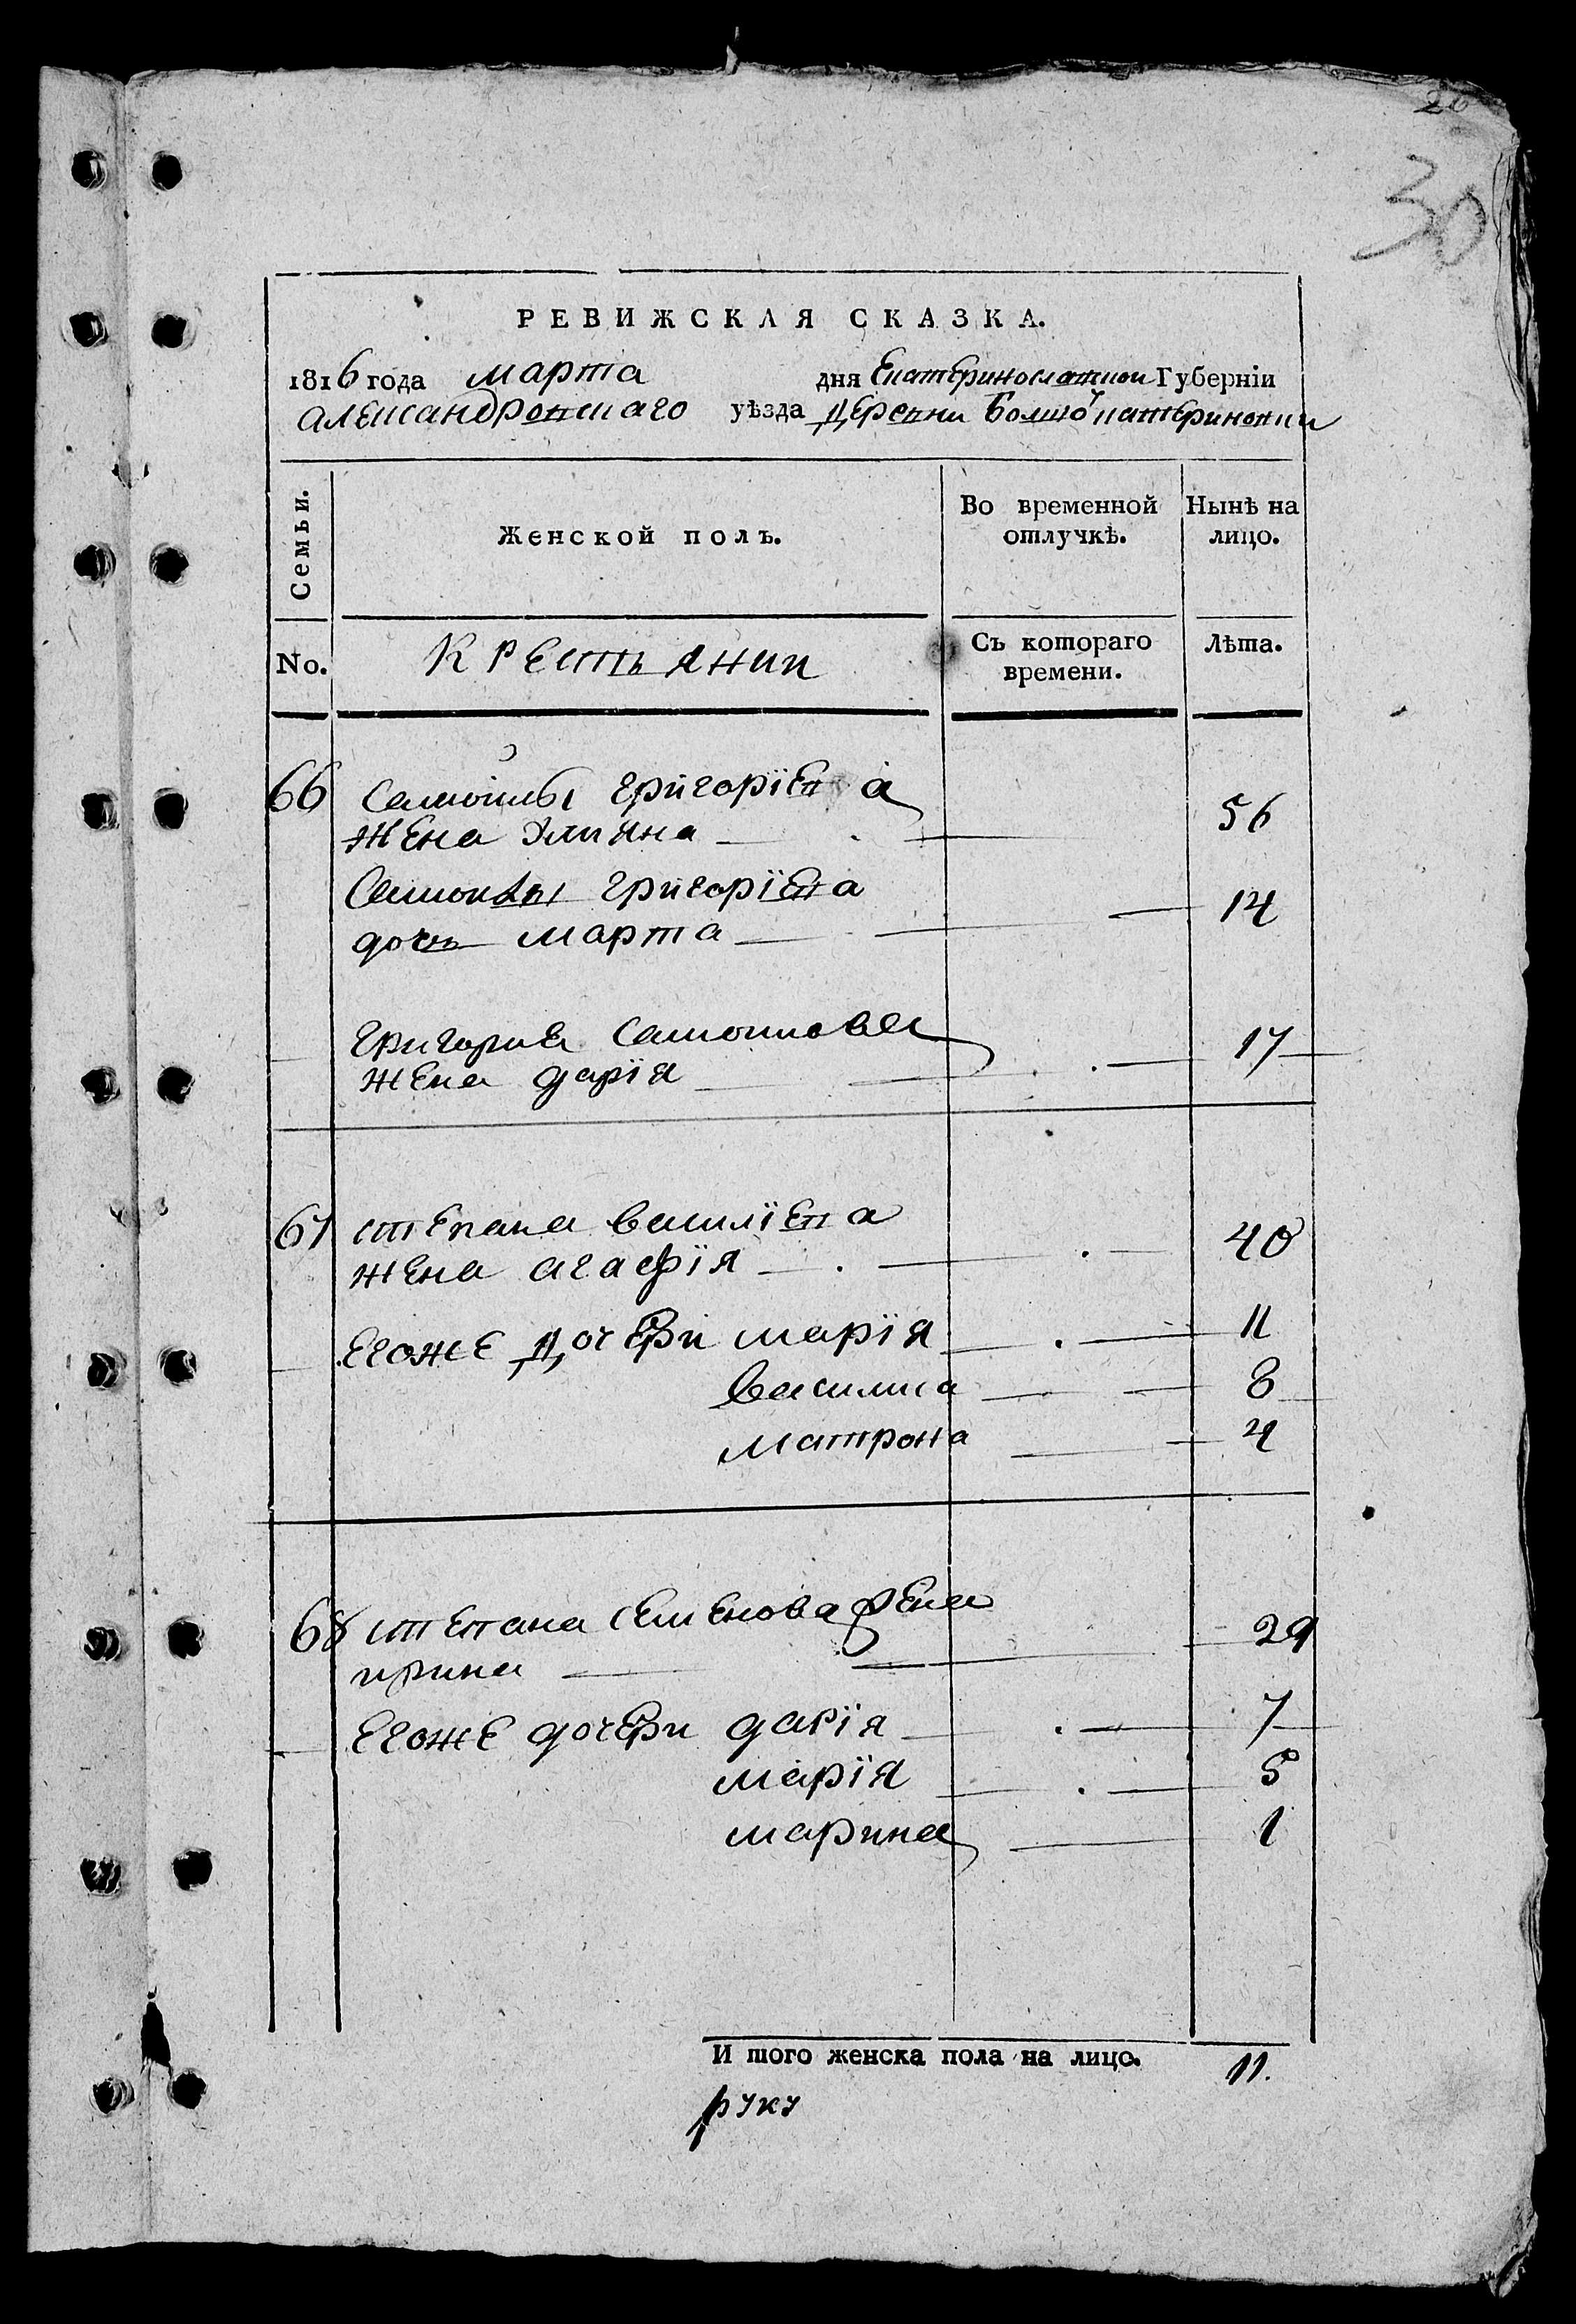 20
30
РЕВИЖСКАЯ СКАЗКА.
1816 года марта дня Екатеринославской Губерніи
Александровскаго уѣзда деревни Болшой катериновки
Семьи. Женской полъ. Во временной отлучкѣ. Нынѣ на лицо.
No. Крестьянии Съ котораго времени. Лѣта.
66 Самойлы григоріева
жена Улияна 56
Самойлы григоріева
дочь марта 14
григория Самойлова
жена дарія 17
67 степана василіева
жена агафія 40
егоже дочери марія 11
василиса 8
матрона 4
68 степана семенова жена
ирина 29
егоже дочери дарія 7
марія 5
марина 1
И того женска пола на лицо. 11.
руку